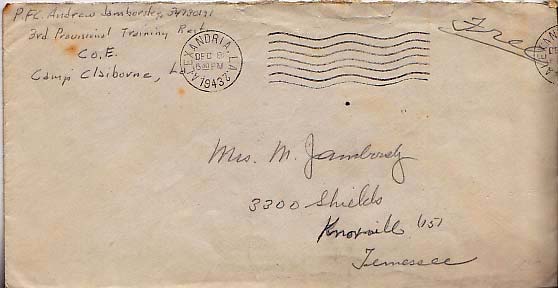 P.F.C. Andrew Jamborsky, 34730191
3rd Provisional Training Regt
Co. E.
Camp Claiborne, La
ALEXANDRIA, LA.
DEC 8
1943
Free
Mrs. M. Jamborsky
3300 Shields
Knoxville (15)
Tennessee